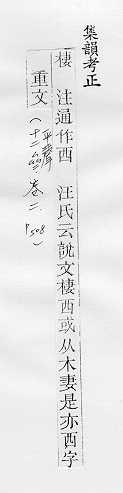 集韻考正
棲 注通作西 汪氏云說文棲西或从木妻是亦西字
重文(平聲十二齊 卷二 P508)